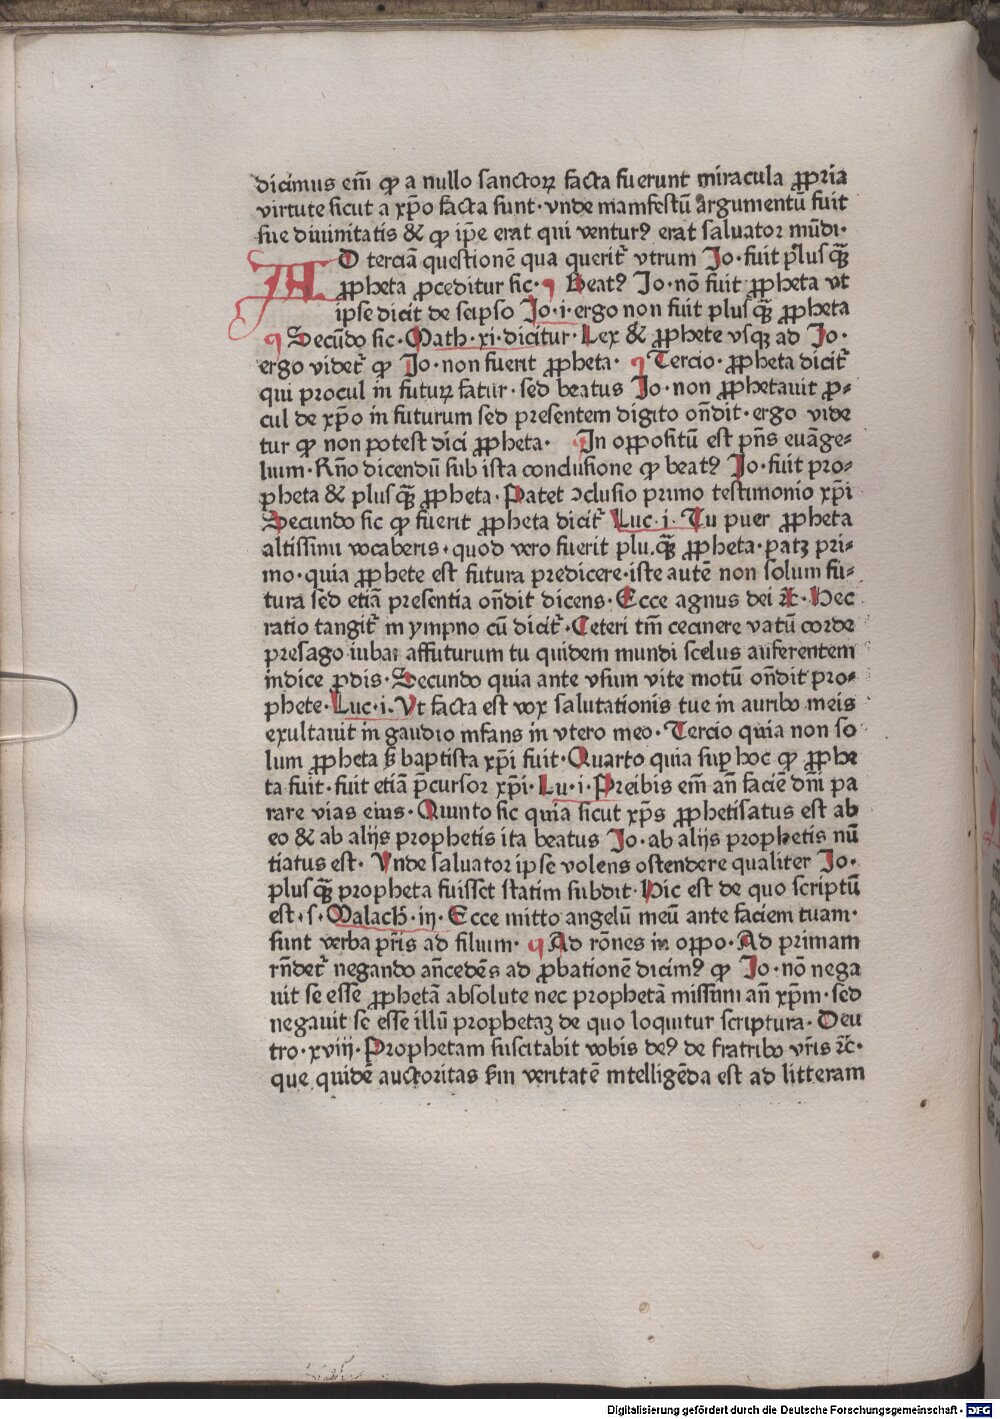 dicimus em̄ ꝙ a nullo sanctoꝝ facta fuerunt miracula ꝓpria
virtute sicut a xp̄o facta sunt·vnde manifestū argumentū fuit
sue diuinitatis & ꝙ ip̄e erat qui ventur⁹ erat saluator mūdi·
AD terciā questionē qua querit̄ vtrum Jo·fuit plus qꝫ̄
ꝓpheta ꝓceditur sic·¶ Beat⁹ Jo·nō fuit ꝓpheta vt
ipse dicit de seipso Jo·i·ergo non fuit plus qꝫ̄ ꝓpheta
¶ Secūdo sic·Math·xi·dicitur·Lex & ꝓphete vsqꝫ ad Jo·
ergo videt̄ ꝙ Jo·non fuerit ꝓpheta· ¶ Tercio·ꝓpheta dicit̄
qui procul in futurꝝ fatur·sed beatus Jo·non ꝓphetauit ꝓ-
cul de xp̄o in futurum sed presentem digito on̄dit·ergo vide
tur ꝙ non potest dici ꝓpheta· ¶In oppositū est pn̄s euāge-
lium·Rn̄o dicendū sub ista conclusione ꝙ beat⁹ Jo·fuit pro-
pheta & plus qꝫ̄ ꝓpheta·Patet ↄclusio primo testimonio xp̄i
Secundo sic ꝙ fuerit ꝓpheta dicit̄ Luc·i·Tu puer ꝓpheta
altissimi vocaberis·quod vero fuerit plu.qꝫ̄ ꝓpheta·patꝫ pri-
mo·quia ꝓphete est futura predicere·iste autē non solum fu-
tura sed etiā presentia on̄dit dicens·Ecce agnus dei ⁊c̄·Hec
ratio tangit̄ in ympno cū dicit̄·Ceteri tm̄ cecinere vatū corde
presago iubar affuturum tu quidem mundi scelus auferentem
indice ꝓdis·Secundo quia ante vsum vite motū on̄dit pro-
phete·Luc·i·Vt facta est vox salutationis tue in auribo meis
exultauit in gaudio infans in vtero meo·Tercio quia non so
lum ꝓpheta sꝫ baptista xp̄i fuit·Quarto quia suꝑ hoc ꝙ ꝓphe
ta fuit·fuit etiā p̄cursor xp̄i·Lu·i·Preibis em̄ an̄ faciē dn̄i pa
rare vias eius·Quinto sic quia sicut xp̄s ꝓphetisatus est ab
eo & ab alijs prophetis ita beatus Jo·ab alijs prophetis nū
tiatus est·Vnde saluator ipse volens ostendere qualiter Jo·
plus qꝫ̄ propheta fuisset statim subdit·Hic est de quo scriptū
est·s·Malach̄·iij·Ecce mitto angelū meū ante faciem tuam·
sunt verba pr̄is ad filium· ¶ Ad rōnes in oppo·Ad primam
rn̄det̄ negando an̄cedēs ad ꝓbationē dicim⁹ ꝙ Jo·nō nega
uit se esse ꝓphetā absolute nec prophetā missum an̄ xp̄m·sed
negauit se esse illū prophetaꝫ de quo loquitur scriptura·Deu
tro·xviij·Prophetam suscitabit vobis de⁹ de fratribo vr̄is ⁊c̄·
que quidē auctoritas sm̄ veritatē intelligēda est ad litteram
Digitalisierung gefördert durch die Deutsche Forschungsgemeinschaft - DFG